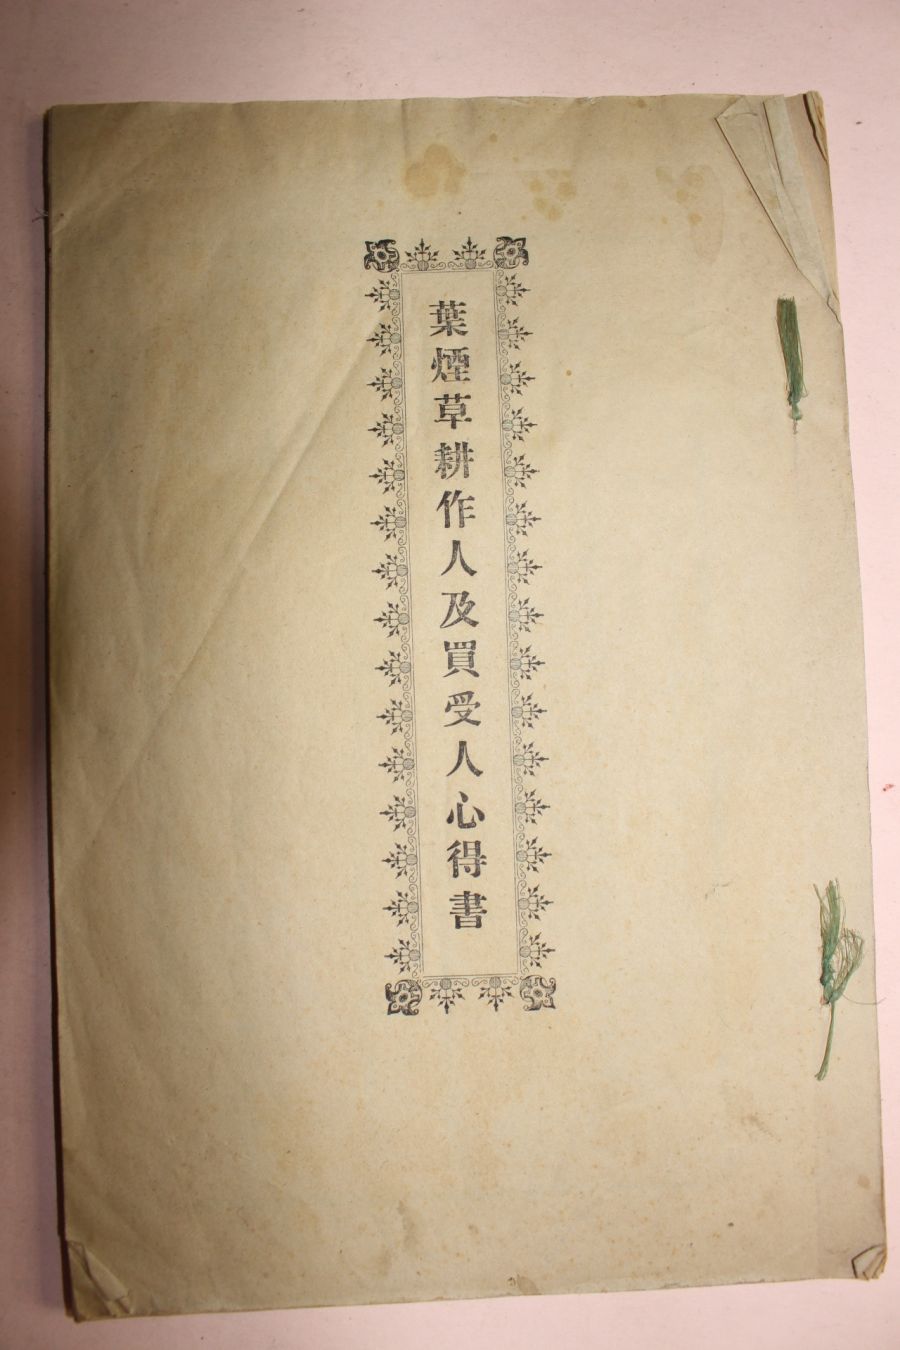 葉煙草耕作人及買受人心得書